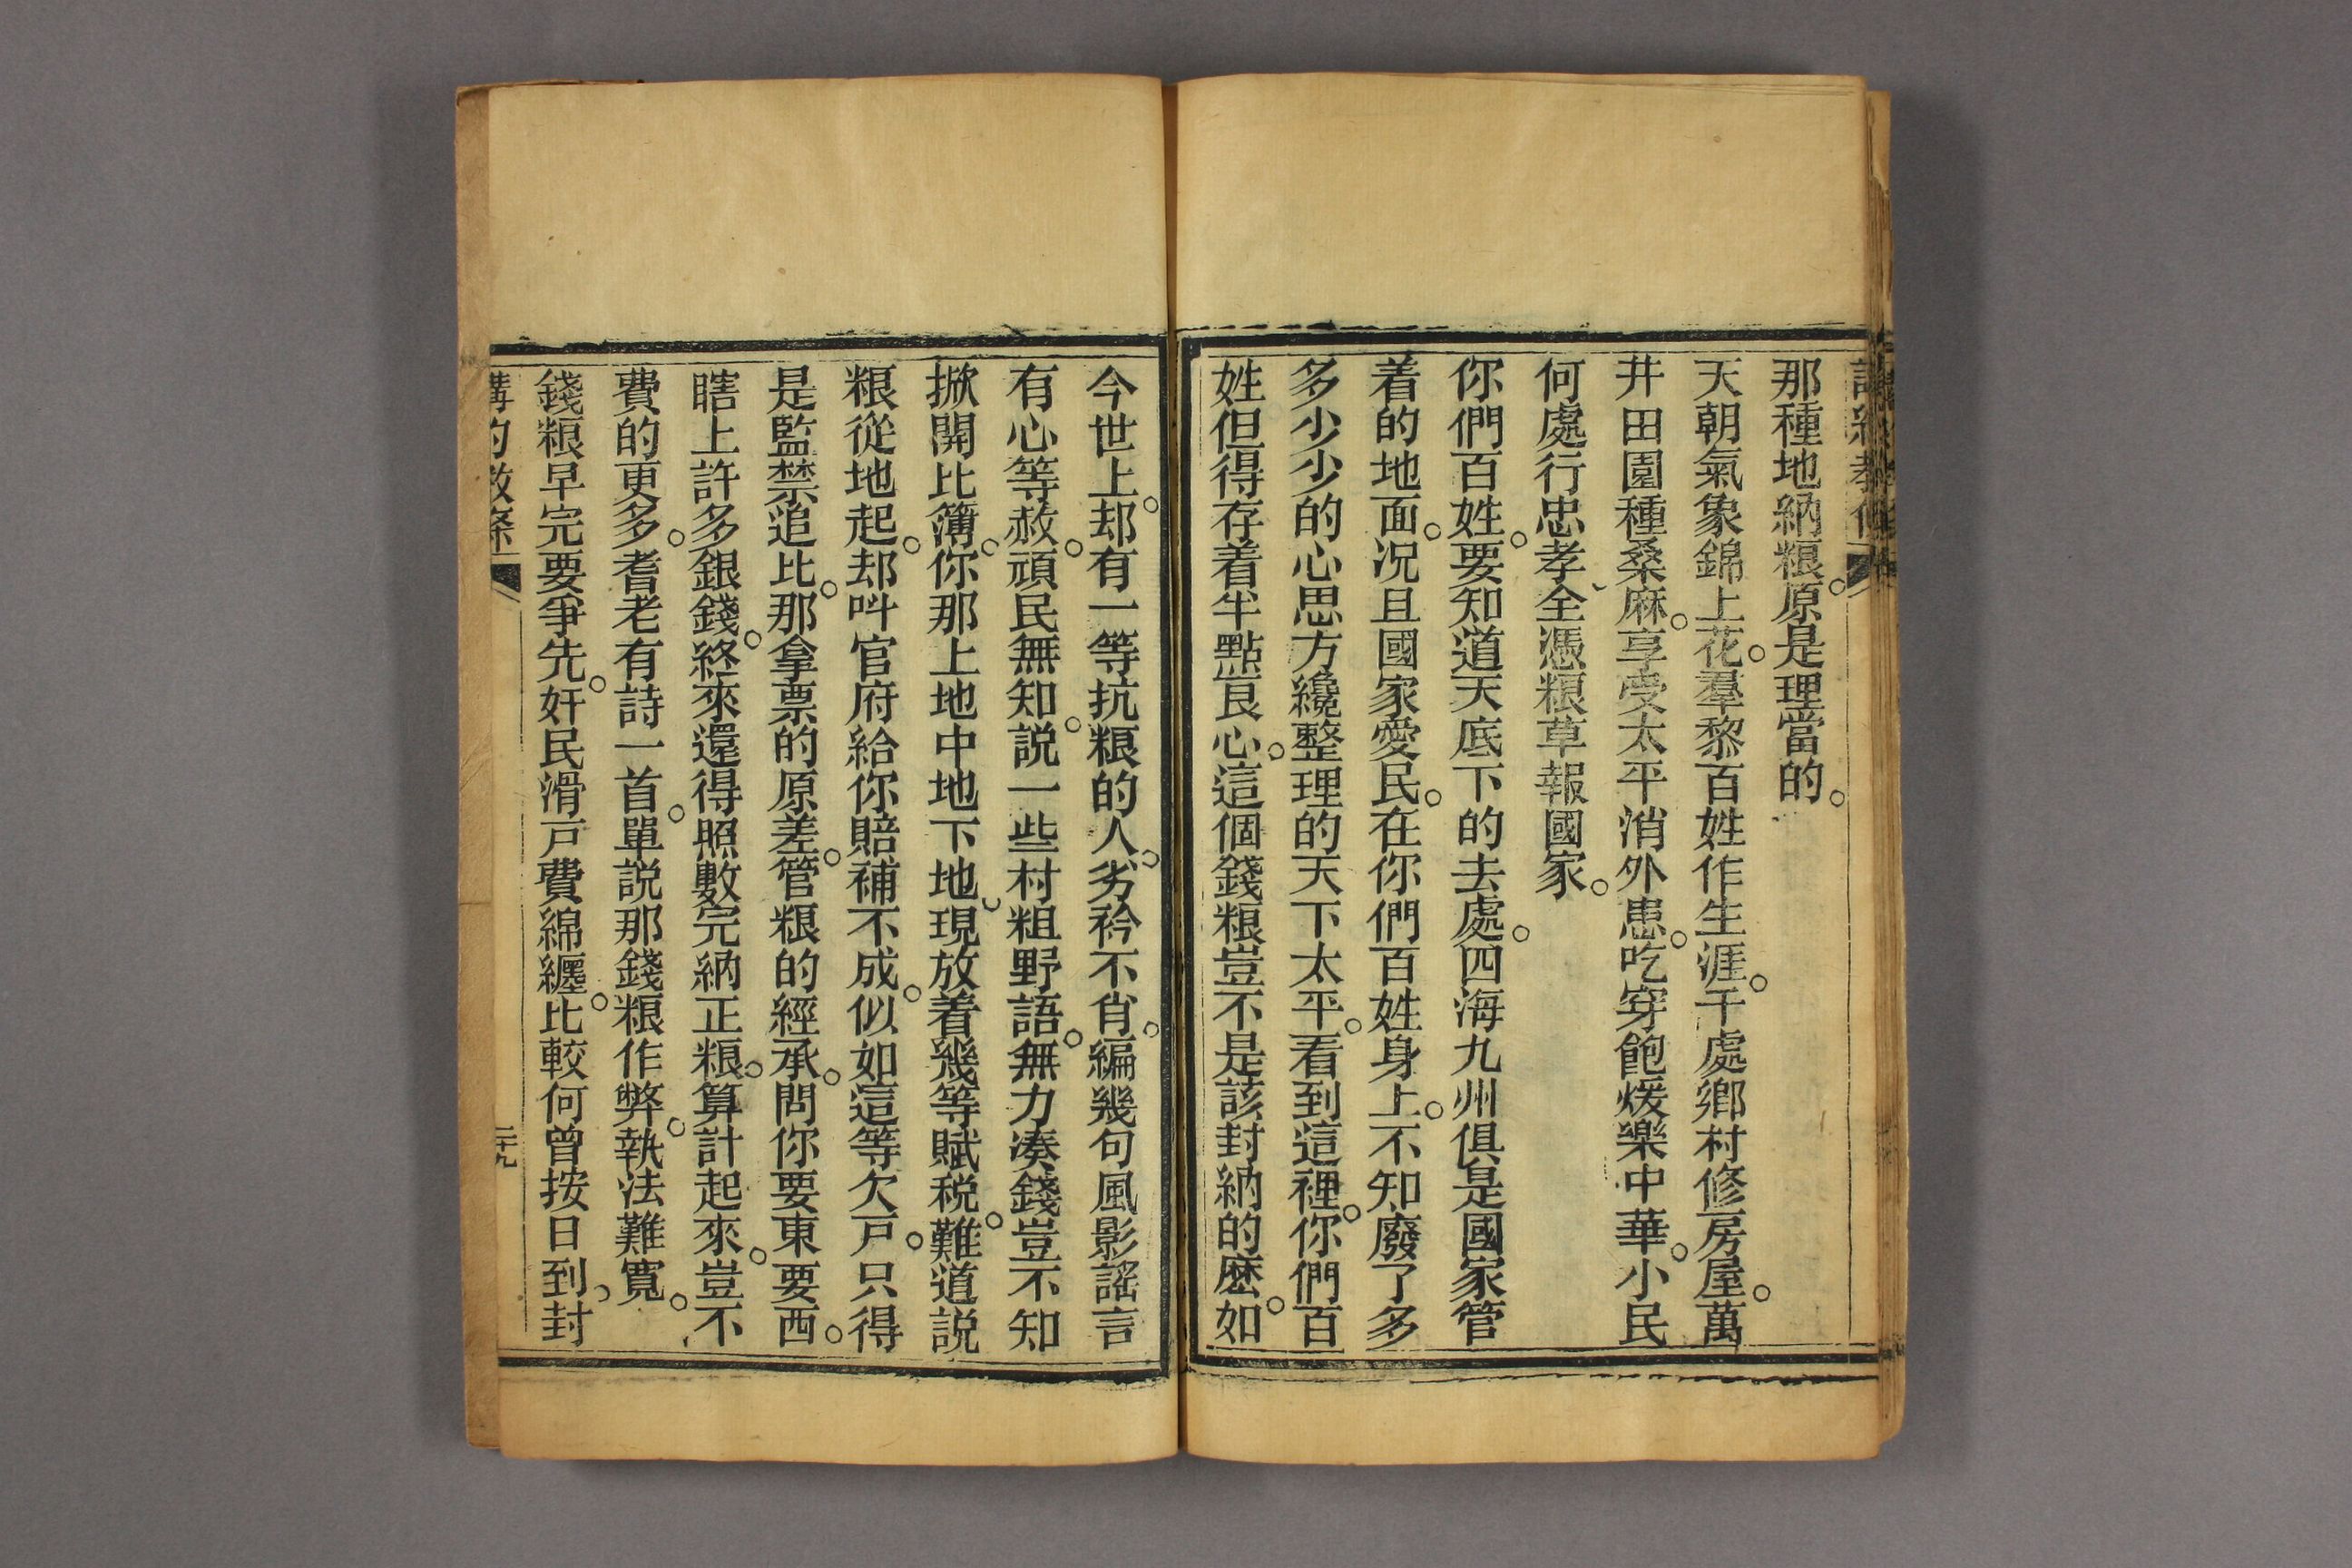 那種地納粮。原是理當的。
天朝氣象錦上花。羣黎百姓作生涯。千處鄉村修房屋。萬
井田園種桑麻。享受太平消外患。吃穿飽煖樂中華。小民
何處行忠孝、全憑粮草報國家。
你們百姓。要知道天底下的去處。四海九州俱是國家管
着的地面。况且國家愛民。在你們百姓身上。不知廢了多
多少少的心思方纔整理的天下太平。看到這裡。你們百
姓但得存着半點良心。這個錢粮豈不是該封納的麽。如
今世上。却有一等抗粮的人。劣衿不肖。編幾句風影謠言
有心等赦。頑民無知。説一些村粗野語。無力湊錢豈不知
掀開比簿。你那上地中地下地、現放着幾等賦税。難道説
粮從地起。却呌官府給你賠補不成。似如這等欠戸。只得
是監禁追比。那拿票的原差。管粮的經承。問你要東要西。
瞎上許多銀錢。終來還得照數完納正粮。算計起來。豈不
費的更多。耆老有詩一首。單説那錢粮作弊。執法難寬。
錢粮早完要爭先。奸民滑戸費綿纏。比較何曾按日到。封
講約教條 二十九